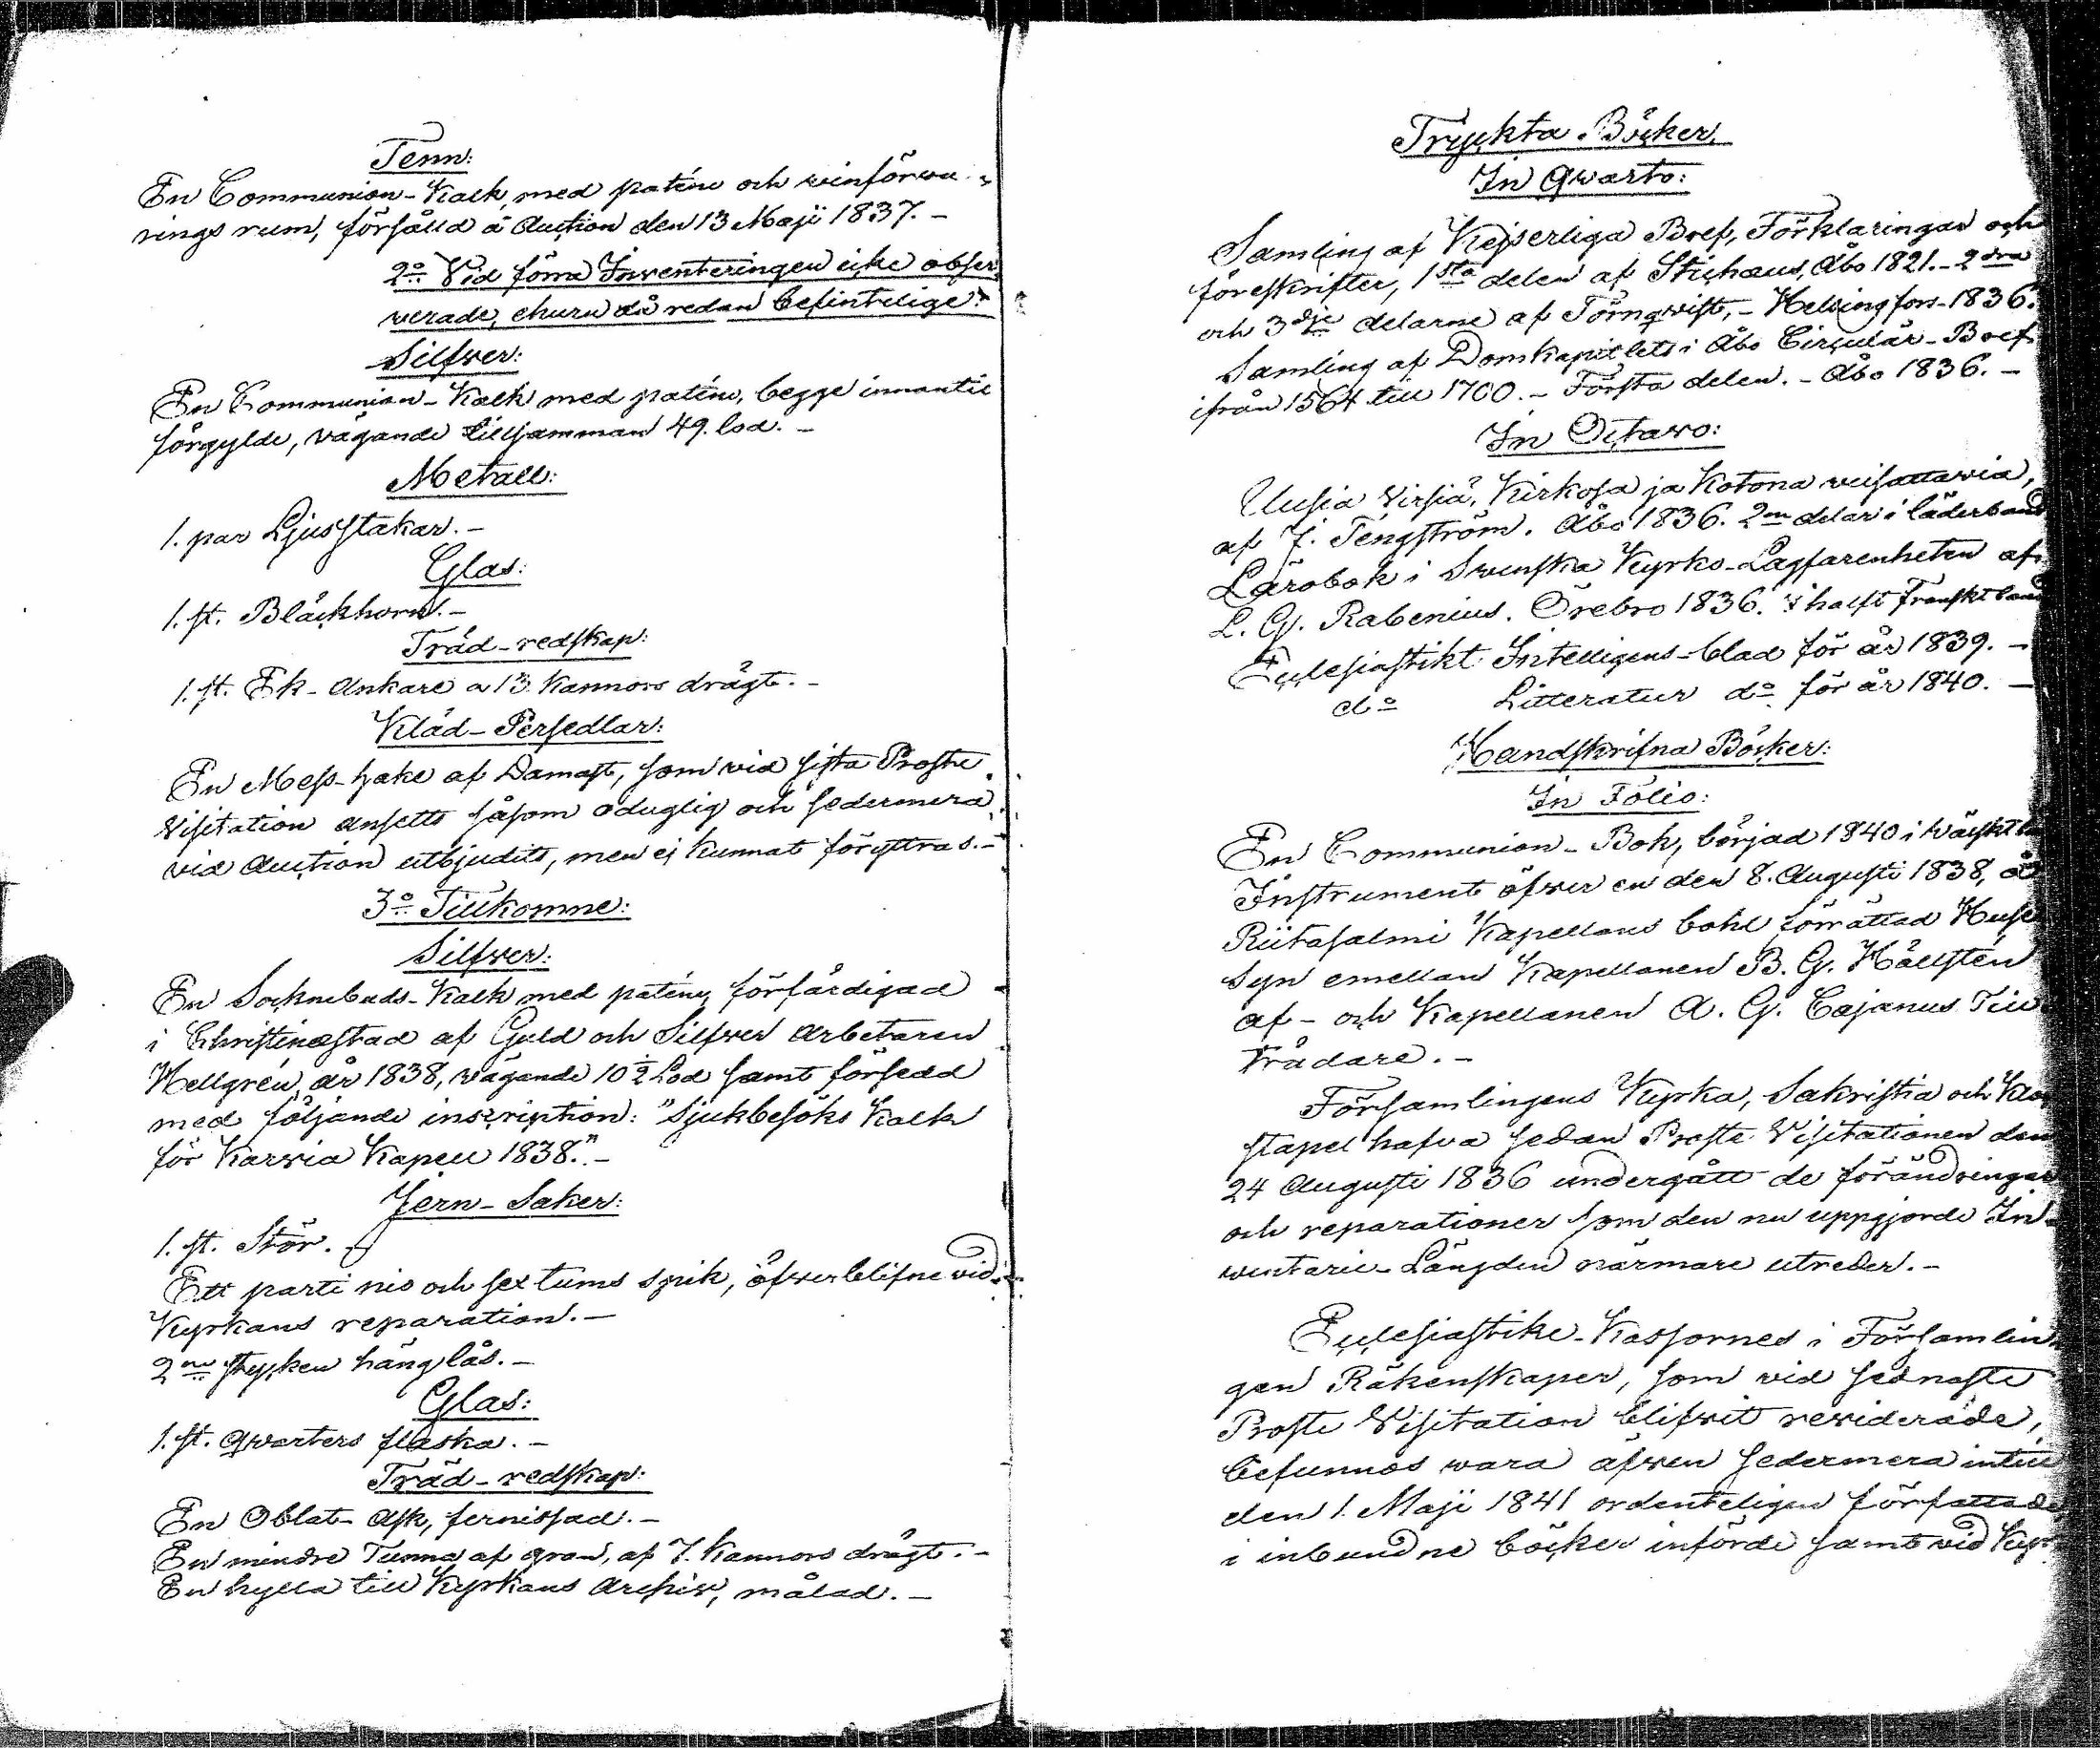 Tenn:
En Communion-Kalk, med paténe och winförwa-
rings rum, försåld å Auction den 13 Maji 1837.-
2o Vid förra Inventeringen icke obser-
verade, ehuru då redan befintelige:
Silfver:
En Communion-Kalk med paténe, begge innantil
förgylde, vägande tillsamman 49. lod.-
Metall:
1. par Ljusstakar.-
Glas:
1. st. Bläckhorn.-
Träd-redskap:
1. st. Ek-Ankare a 13. Kannors drägt.-
Kläd-Persedlar:
En Mess-hake af Damast, som vid sista Prosте
Visitation ansetts såsom oduglig och sedermera
vid Auction utbjudits, men ej kunnat föryttras.-
3o Tillkomne:
Silfver:
En Socknebuds-Kalk med paténe, förfärdigad
i Christinæstad af Guld och Silfver Arbetaren
Hellgrén, år 1838, vägande 10 1/2 Lod samt försedd
med följande inscription: "Sjukbesöks Kalk
för Karvia Kapell 1838."-
Jern-Saker:
1. st. Stör.
Ett parti nio och sex tums spik, öfverblifne vid
Kyrkans reparation.-
2ne stycken hänglås.-
Glas:
1. st. qvarters flaska.-
Träd-redskap:
En Oblat-Ask, fernissad.-
En mindre Tunna af gran, af 7. Kannors drägt.-
En hylla till Kyrkans Archiv, målad.-
Tryckta Böcker.
In Qvarto:
Samling af Kejserliga Bref, Förklaringar och
föreskrifter, 1sta delen af Stichæus, Åbo 1821.- 2dra
och 3dje delarne af Törnqvist,- Helsingfors-1836.
Samling af Domkapitlets i Åbo Circulär-Bref
ifrån 1564 till 1700.- Första delen.- Åbo 1836.-
In Octavo:
Uusia Virsiä, Kirkosa ja Kotona veisattavia,
af J. Tengström. Åbo 1836. 2ne delar i läderband
Lärobok i Svenska Kyrko-Lagfarenheten af
L. G. Rabenius. Örebro 1836. i halft Franskt band
Ecclesiastikt Intelligens-blad för år 1839.-
do Litteratur do för år 1840.-
Handskrifna Böcker:
In Folio:
En Communion-Bok, börjad 1840 i
Instrument öfver en den 8. Augusti 1838, å
Riitasalmi Kapellans bohl förrättad Huse
Syn emellan Kapellanen B. G. Hällstén
af- och Kapellanen A. G. Cajanus Till-
trädare.-
Församlingens Kyrka, Sakristia och Klock
stapel hafva sedan Proste Visitationen den
24 Augusti 1836 undergått de förändringar
och reparationer som den nu uppgjorde In-
ventarie-Längden närmare utreder.-
Ecclesiastike-Kassornes i Församlin
gen Räkenskaper, som vid sednaste
Proste Visitation blifvit reviderade,
befunnos vara äfven sedermera intill
den 1. Maji 1841 ordenteligen författade
i inbundne böcker införde samt vid Kyr